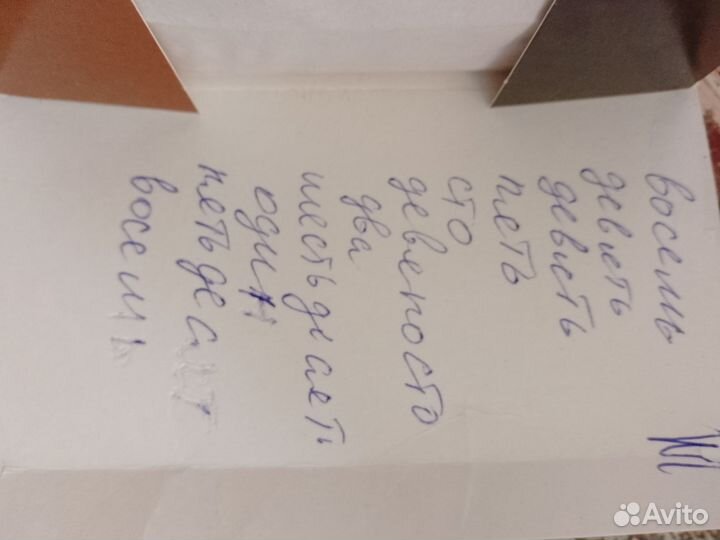 восемь
девять
девять
пять
сто
девеносто
два
шестьдесять
один
петьдесят
восемь
Avito